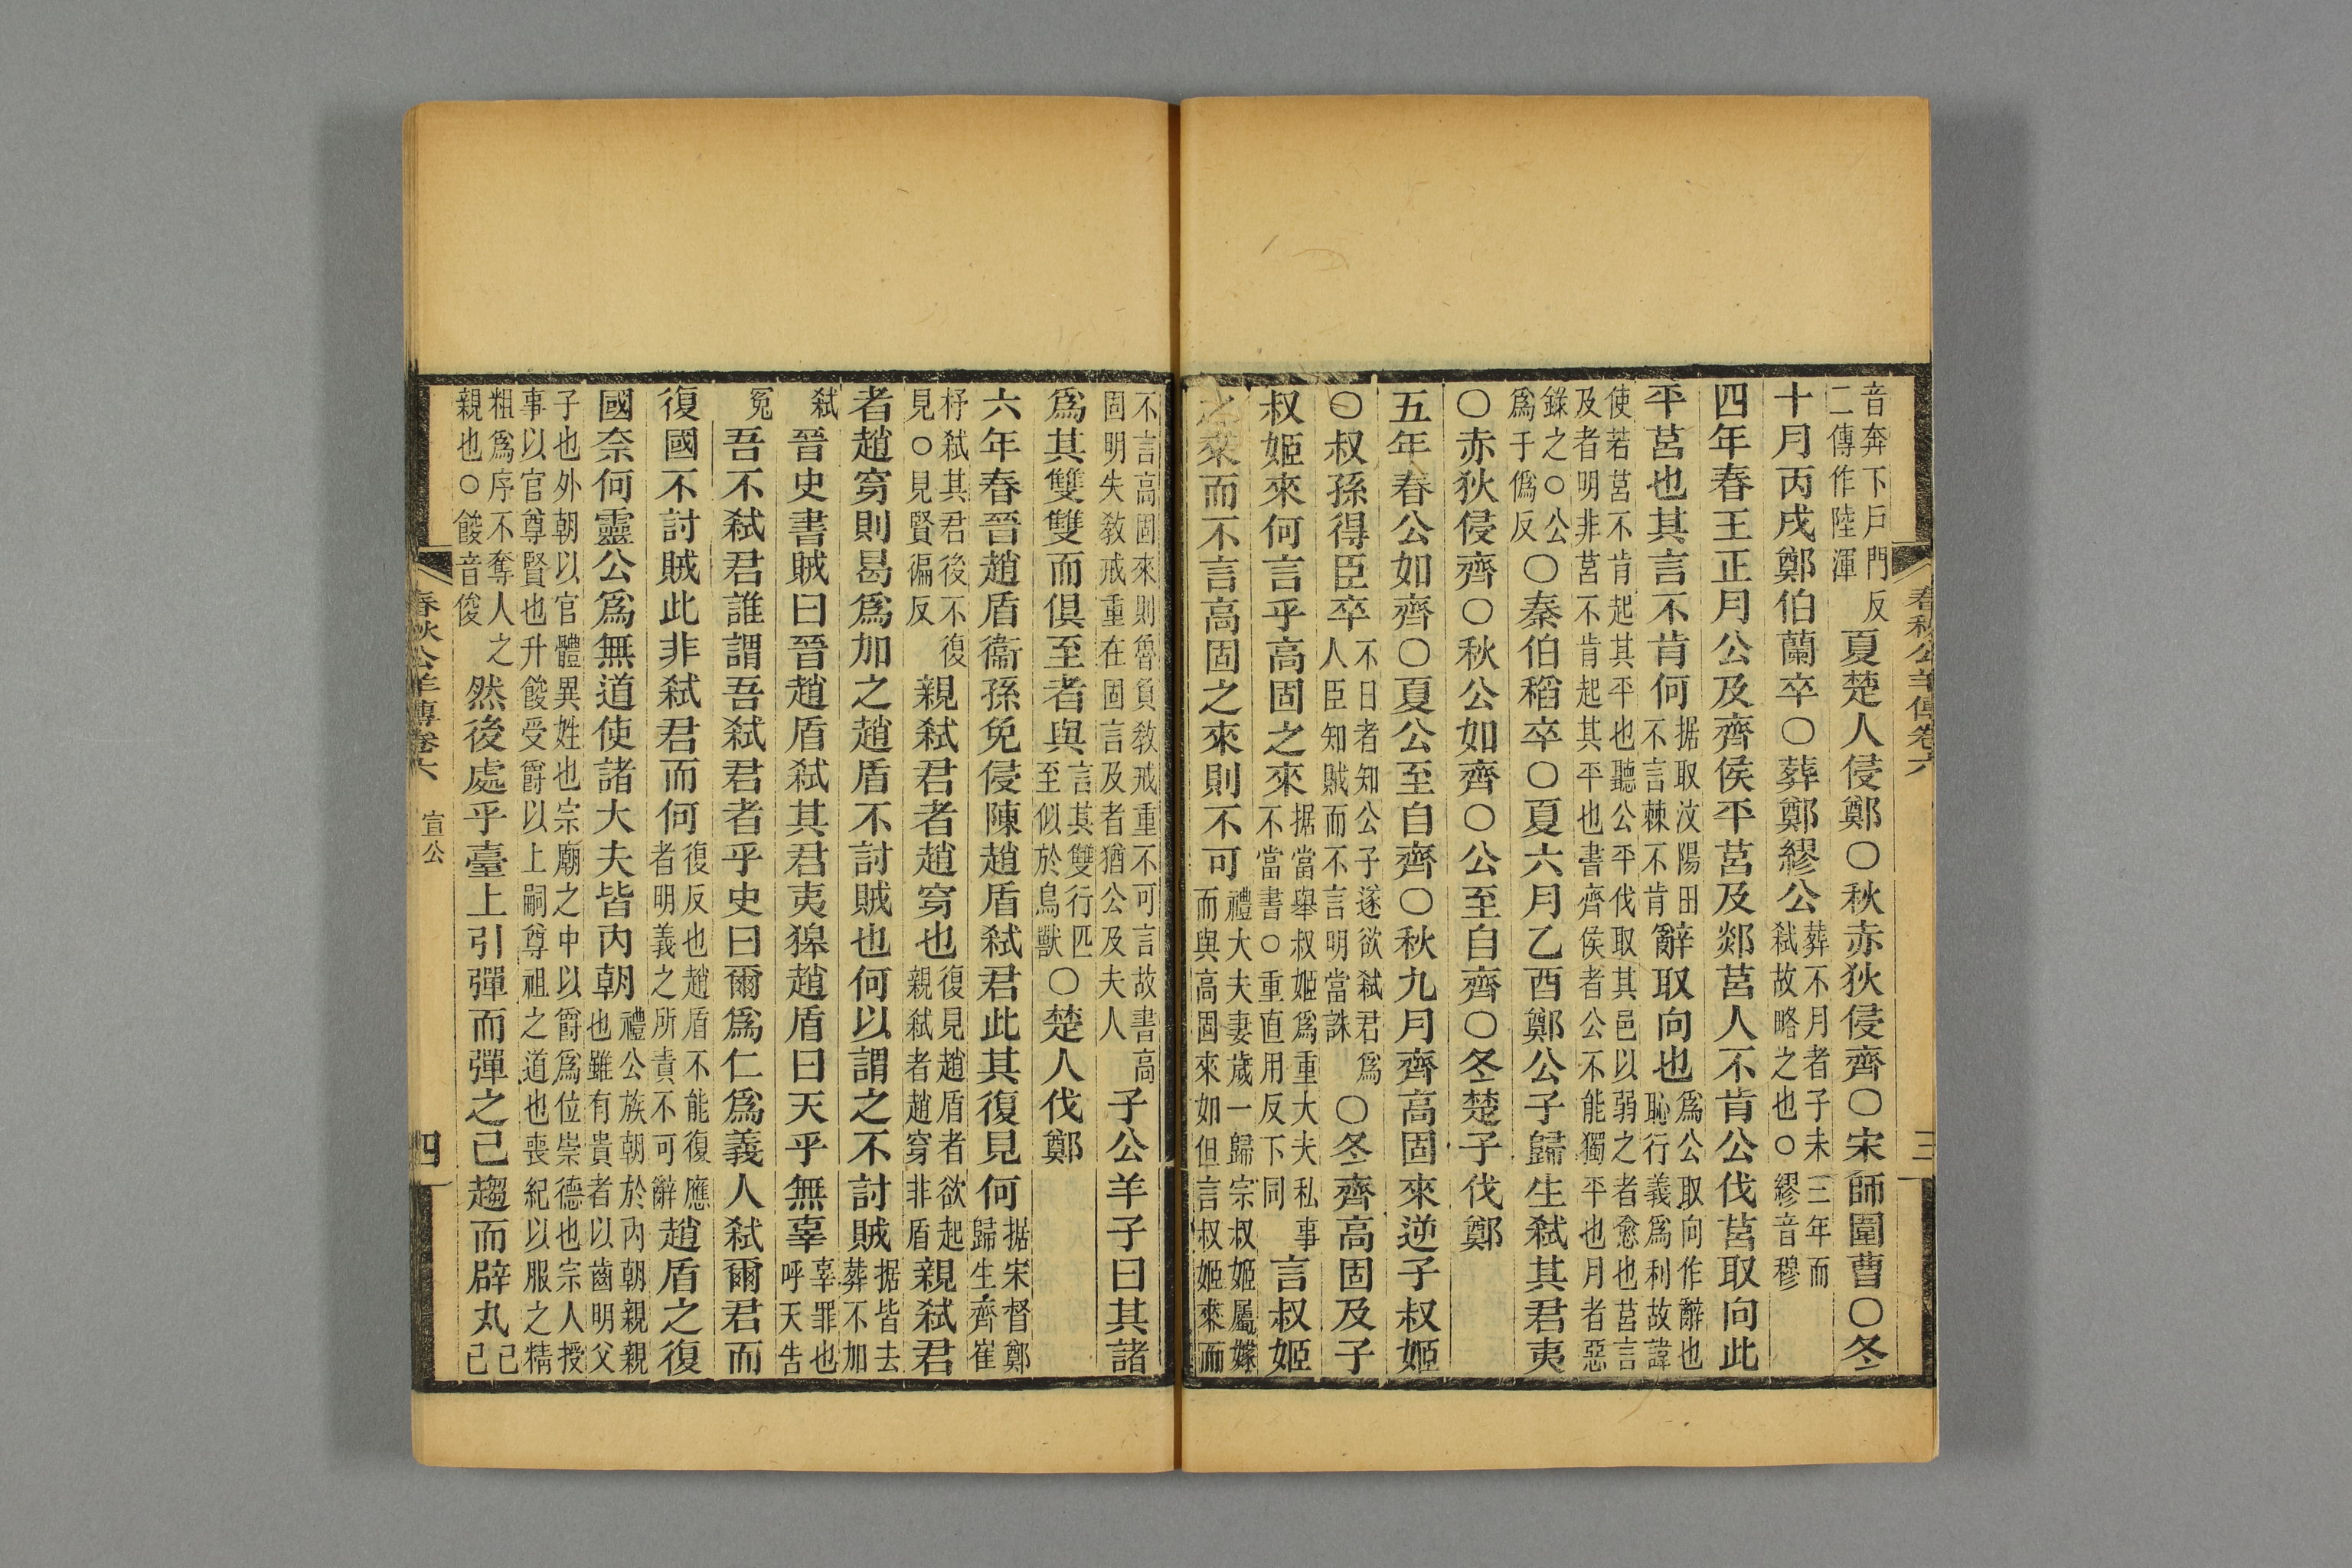 春秋公羊傳卷六
三
音奔下戶門反
二傳作陸渾
夏楚人侵鄭〇秋赤狄侵齊〇宋師圍曹〇冬
十月丙戌鄭伯蘭卒〇葬鄭繆公
葬不月者子未三年而
弒故略之也〇繆音穆
四年春王正月公及齊侯平莒及郯莒人不肯公伐莒取向此
平莒也其言不肯何
据取汶陽田
不言棘不肯
辭取向也
爲公取向作辭也
恥行義爲利故諱
使若莒不肯起其平也聽公平伐取其邑以弱之者愈也莒言
及者明非莒不肯起其平也書齊侯者公不能獨平也月者惡
錄之〇公
爲于僞反
〇秦伯稻卒〇夏六月乙酉鄭公子歸生弒其君夷
〇赤狄侵齊〇秋公如齊〇公至自齊〇冬楚子伐鄭
五年春公如齊〇夏公至自齊〇秋九月齊高固來逆子叔姬
〇叔孫得臣卒
不日者知公子遂欲弒君爲
人臣知賊而不言明當誅
〇冬齊高固及子
叔姬來何言乎高固之來
据當舉叔姬爲重大夫私事
不當書〇重直用反下同
言叔姬
之來而不言高固之來則不可
禮大夫妻歲一歸宗叔姬屬嫁
而與高固來如但言叔姬來而
不言高固來則魯負教戒重不可言故書高
固明失教戒重在固言及者猶公及夫人
子公羊子曰其諸
爲其雙雙而俱至者與
言其雙行匹
至似於鳥獸
〇楚人伐鄭
六年春晉趙盾衞孫免侵陳趙盾弒君此其復見何
据宋督鄭
歸生齊崔
杼弒其君後不復
見〇見賢徧反
親弒君者趙穿也
復見趙盾者欲起
親弒者趙穿非盾
親弒君
者趙穿則曷爲加之趙盾不討賊也何以謂之不討賊
据皆去
葬不加
弒
晉史書賊曰晉趙盾弒其君夷獋趙盾曰天乎無辜
辜罪也
呼天告
冤
吾不弒君誰謂吾弒君者乎史曰爾爲仁爲義人弒爾君而
復國不討賊此非弒君而何
復反也趙盾不能復應
者明義之所責不可辭
趙盾之復
國奈何靈公爲無道使諸大夫皆內朝
禮公族朝於內朝親親
也雖有貴者以齒明父
子也外朝以官體異姓也宗廟之中以爵爲位崇德也宗人授
事以官尊賢也升餕受爵以上嗣尊祖之道也喪紀以服之精
粗爲序不奪人之
親也〇餕音俊
然後處乎臺上引彈而彈之己趨而辟丸
己
己
春秋公羊傳卷六
宣公
四